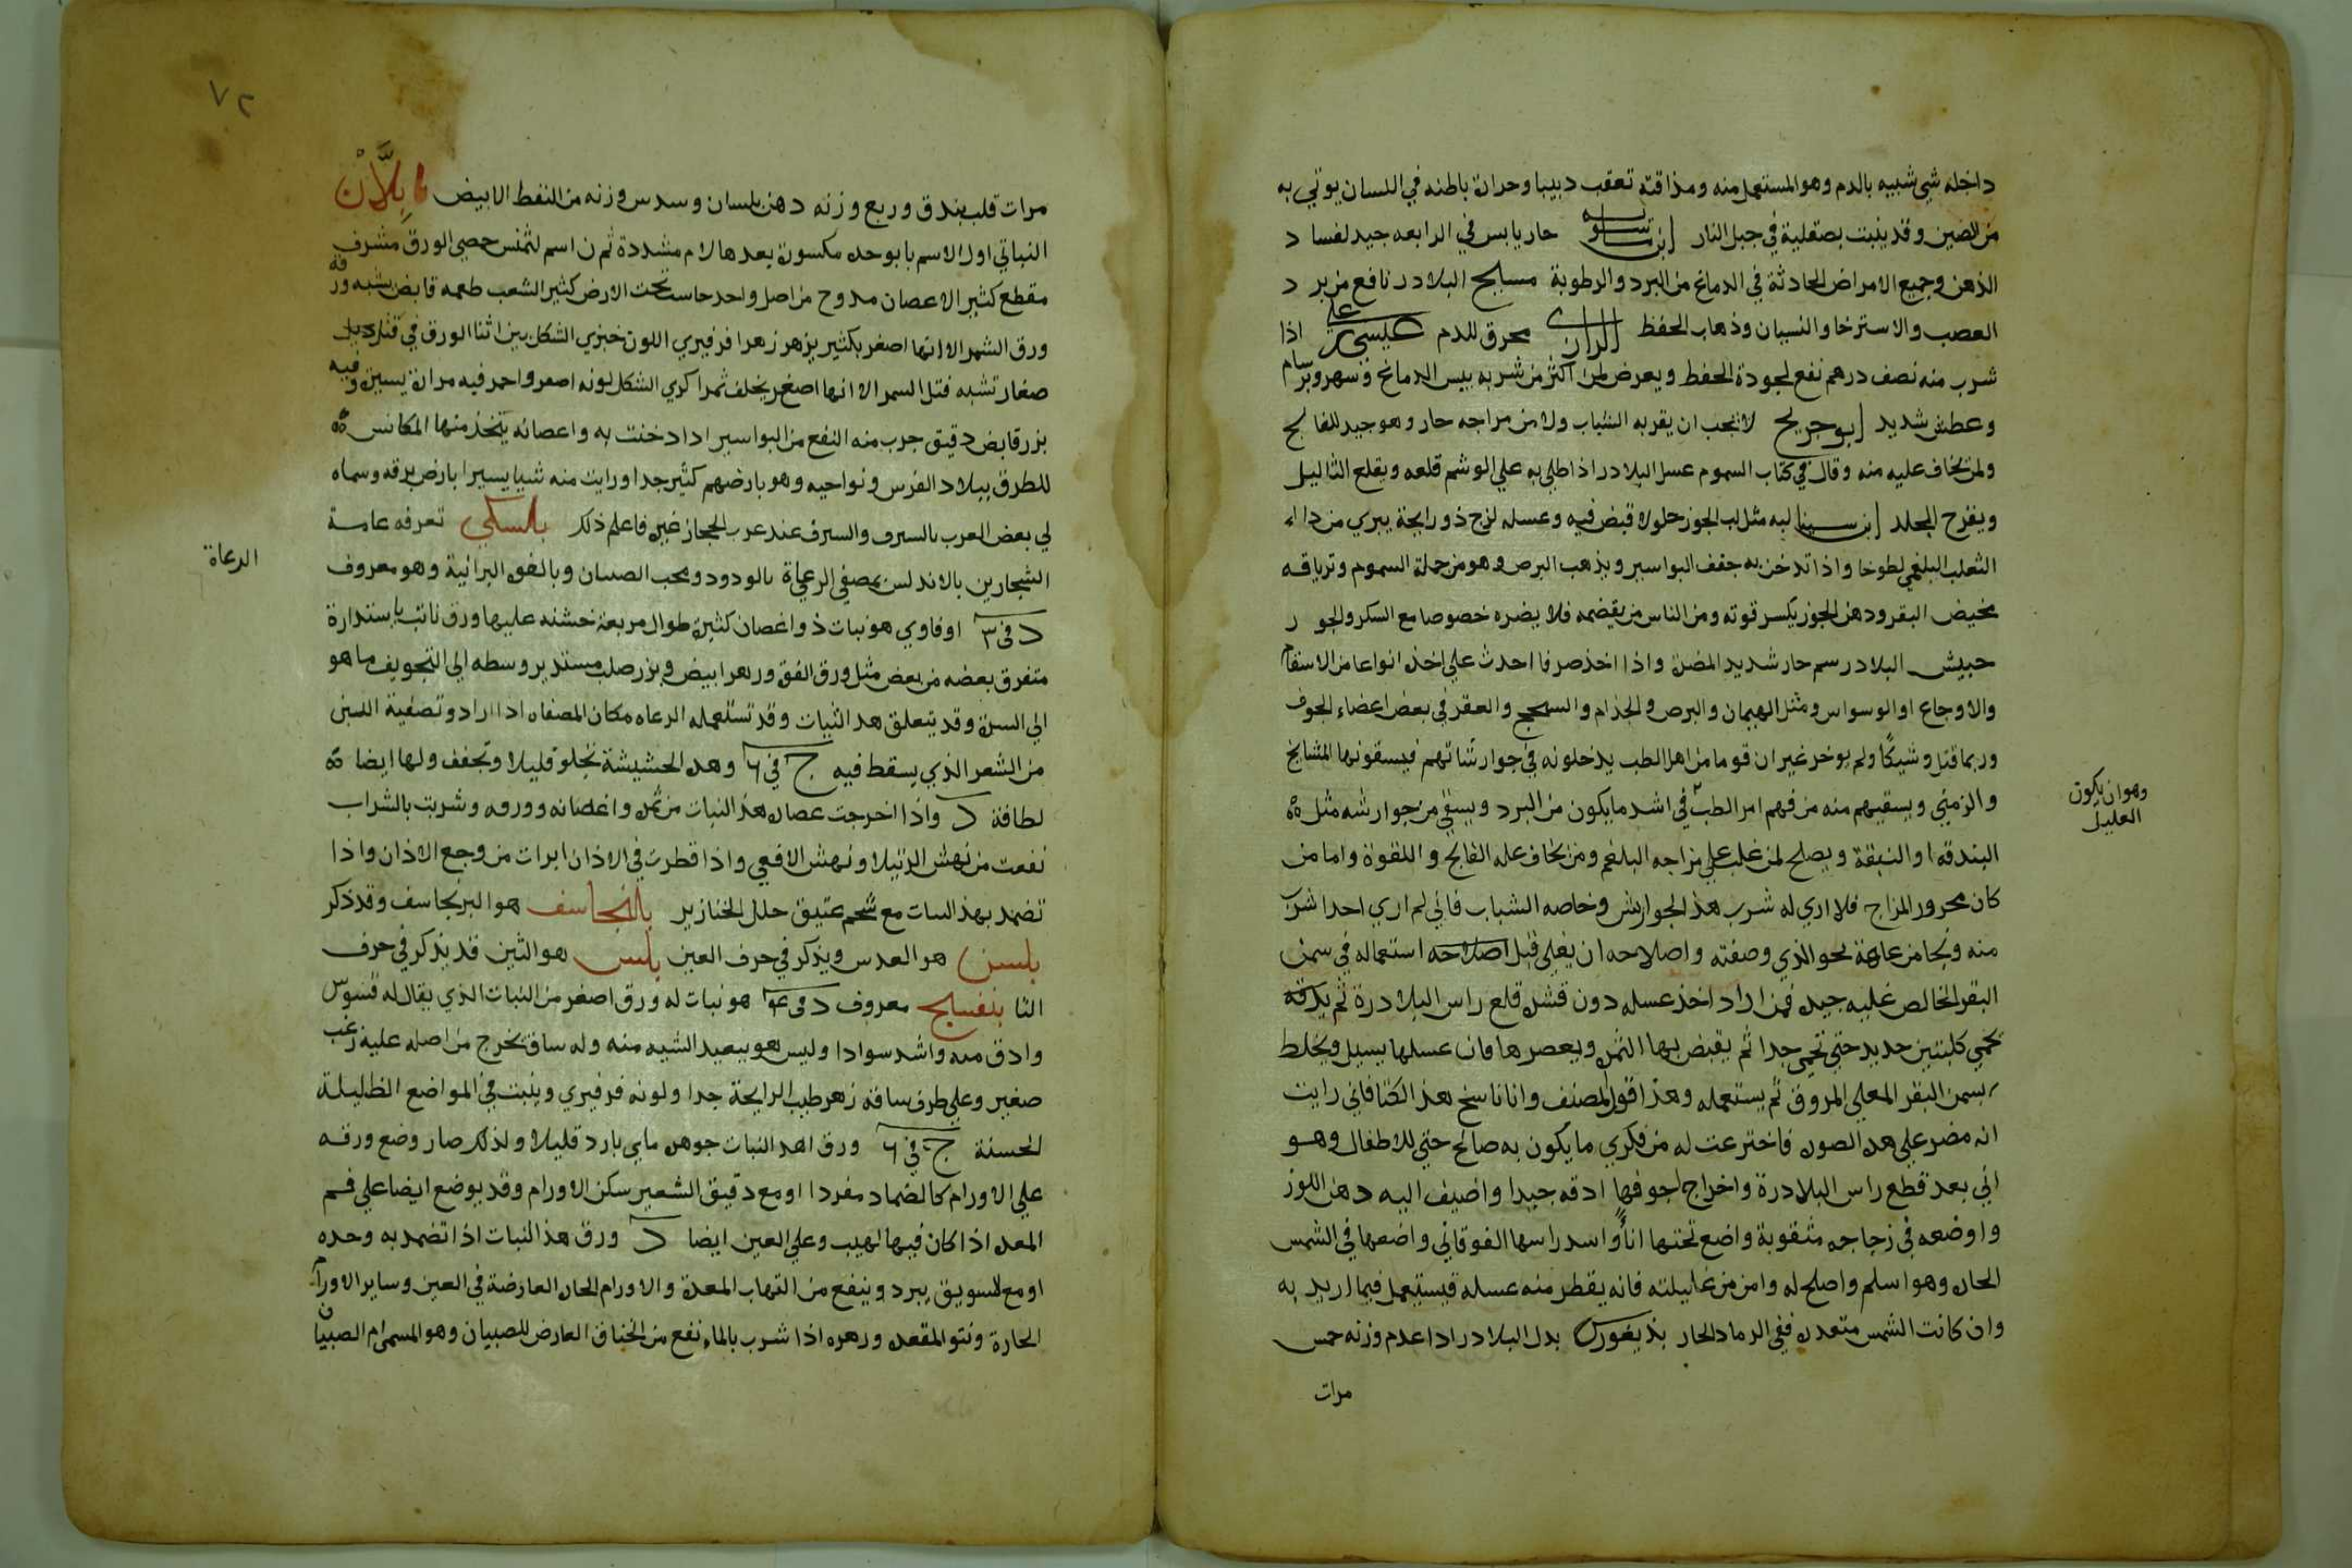 داخله شي شبيه بالدم وهو المستعمل منه ومذاقته تعقب دبيبا وحرارة باطنه في اللسان يوتي به
من الصين وقد ينبت بصقلية في جبل النار ابن ماسويه حار يابس في الرابعه جيد لفساد
الذهن وجميع الامراض الحادثة في الدماغ من البرد والرطوبة مسيح البلادر نافع من برد
العصب والاسترخا والنسيان وذهاب الحفظ الرازي محرق للدم عيسي بن علي اذا
شرب منه نصف درهم نفع لجودة الحفظ ويعرض لمن اكثر من شربه يبس الدماغ وسهر وبرسام
وعطش شديد ابو جريح لا يجب ان يقربه الشباب ولا من مزاجه حار وهو جيد للفالج
ولمن يخاف عليه منه وقال في كتاب السموم عسل البلادر اذا طلي به علي الوشم قلعه ويقلع الثاليل
ويقرح الجلد ابن سينا لبه مثل لب الجوز حلو لا قبض فيه وعسله لزج ذو رايحة يبري من داء
الثعلب البلغمي لطوخا واذا تدخن به جفف البواسير ويذهب البرص وهو من جملة السموم وترياقه
مخيض البقر ودهن الجوز يكسر قوته ومن الناس من يقضمه فلا يضره خصوصا مع السكر والجوز
حبيش البلادر سم حار شديد المضرة واذا اخذ صرفا احدث علي اخذه انواعا من الاسقام
والاوجاع او الوسواس ومثل الهيمان والبرص والجذام والسحج والعقر في بعض اعضاء الجوف
وربما قتل وشيكا ولم يوخر غير ان قوما من اهل الطب يدخلونه في جوارشاتهم فيسقونها المشايخ
والزمني ويسقيهم منه من فهم امر الطب في اشد ما يكون من البرد ويسقي من جوارشه مثل
البندقه او النبقة ويصلح لمن غلب علي مزاجه البلغم ومن يخاف عليه الفالج واللقوة واما من
كان محرور المزاج فلا اري له شرب هذا الجوارش وخاصه الشباب فاني لم اري احدا شرب
منه ونجا من عاهة نحو الذي وصفته واصلاحه ان يغلي قبل اصلاحه استعماله في سمن
البقر الخالص غليه جيده فمن اراد اخذ عسله دون قشره قلع راس البلادرة ثم يدقه
تحمي كلبتين حديد حتي تحمي جدا ثم يقبض بها الثمرة ويعصرها فان عسلها يسيل ويخلط
بسمن البقر المغلي المروق ثم يستعمله وهذا قول المصنف وانا ناسخ هذا الكتاب فاني رايت
انه مضر علي هذه الصورة فاخترعت له من فكري ما يكون به صالح حتي للاطفال وهو
اني بعد قطع راس البلادرة واخراج اجوفها ادقه جيدا واضيف اليه دهن اللوز
واوضعه في زجاجه مثقوبة واضع تحتها اناء واسد راسها الفوقاني واضعها في الشمس
الحارة وهو اسلم واصلح له وامن من غايلته فانه يقطر منه عسله فيستعمل فيما اريد به
وان كانت الشمس متعدرة ففي الرماد الحار بديغورس بدل البلادر اذا عدم وزنه خمس
مرات
وهو ان يكون
العليل
٧٢
مرات قلب بندق وربع وزنه دهن بلسان وسدس وزنه من النفط الابيض بابلان
النباتي اول الاسم با بوحده مكسورة بعدها لام مشددة ثم ن اسم لثمنس حمصي الورق مشرف
مقطع كثير الاعصان مدوح من اصل واحد تحت الارض كثير الشعب طعمه قابض يشبه ورقه
ورق الشمر الا انها اصغر بكثير يزهر زهرا فرفيري اللون خبزي الشكل بين اثنا الورق في
صغار تشبه فتل السمر الا انها اصغر يخلف ثمرا كري الشكل لونه اصفر واحمر فيه مرارة يسيرة وفيه
بزر قابض دقيق جرب منه النفع من البواسير اذا دخنت به واعصانه يتخذ منها المكانس
للطرق ببلاد القدس ونواحيه وهو بارضهم كثير جدا ورايت منه شيا يسيرا بارض برقه وسماه
لي بعض العرب بالسرف والسرف عند عرب الحجاز غيره فاعلم ذلك بلسكي تعرفه عامة
الشجارين بالاندلس بمصفي الرعاة بالودود وبحب الصبيان وبالفوة البرانية وهو معروف
الرعاة
د في ٣ اوفاوي هو نبات ذو اغصان كثيرة طوال مربعة خشنه عليها ورق نابت باستدارة
متفرق بعضه من بعض مثل ورق الفوة وزهر ابيض وبزر صلب مستدير وسطه الي التجويف ما هو
الي السرة وقد يتعلق هذا النبات وقد تستعمله الرعاه مكان المصفاه اذا ارادو تصفية اللبن
من الشعر الذي يسقط فيه ج في ٦ وهذه الحشيشة تجلو قليلا وتجفف ولها ايضا
لطافة د واذا اخرجت عصارة هذا النبات من ثمره واغصانه وورقه وشربت بالشراب
نفعت من نهش الرتيلا ونهش الافعي واذا قطرت في الاذان ابرات من وجع الاذان واذا
تضمد بهذا النبات مع شحم عتيق حلل الخنازير بلنجاسف هو البرنجاسف وقد ذكر
بلسن هو العدس ويذكر في حرف العين بلس هو التين قد يذكر في حرف
التا بنفسج معروف د في ٤ هو نبات له ورق اصغر من النبات الذي يقال له قسوس
وادق منه واشد سوادا وليس هو ببعيد الشبه منه وله ساق تخرج من اصله عليه زغب
صغير وعلي طرف ساقه زهر طيب الرايحة جدا ولونه فرفيري وينبت في المواضع الظليلة
الخشنة ج في ٦ ورق اهذا النبات جوهره ماي بارد قليلا ولذلك صار وضع ورقه
علي الاورام كالضماد مفردا او مع دقيق الشعير سكن الاورام وقد يوضع ايضا علي فم
المعده اذا كان فيها لهيب وعلي العين ايضا د ورق هذا النبات اذا تضمد به وحده
او مع السويق يبرد وينفع من التهاب المعدة والاورام الحاره العارضة في العين وساير الاورام
الحارة ونتو المقعده وزهره اذا شرب بالماء نفع من الخناق العارض للصبيان وهو المسمي ام الصبيان